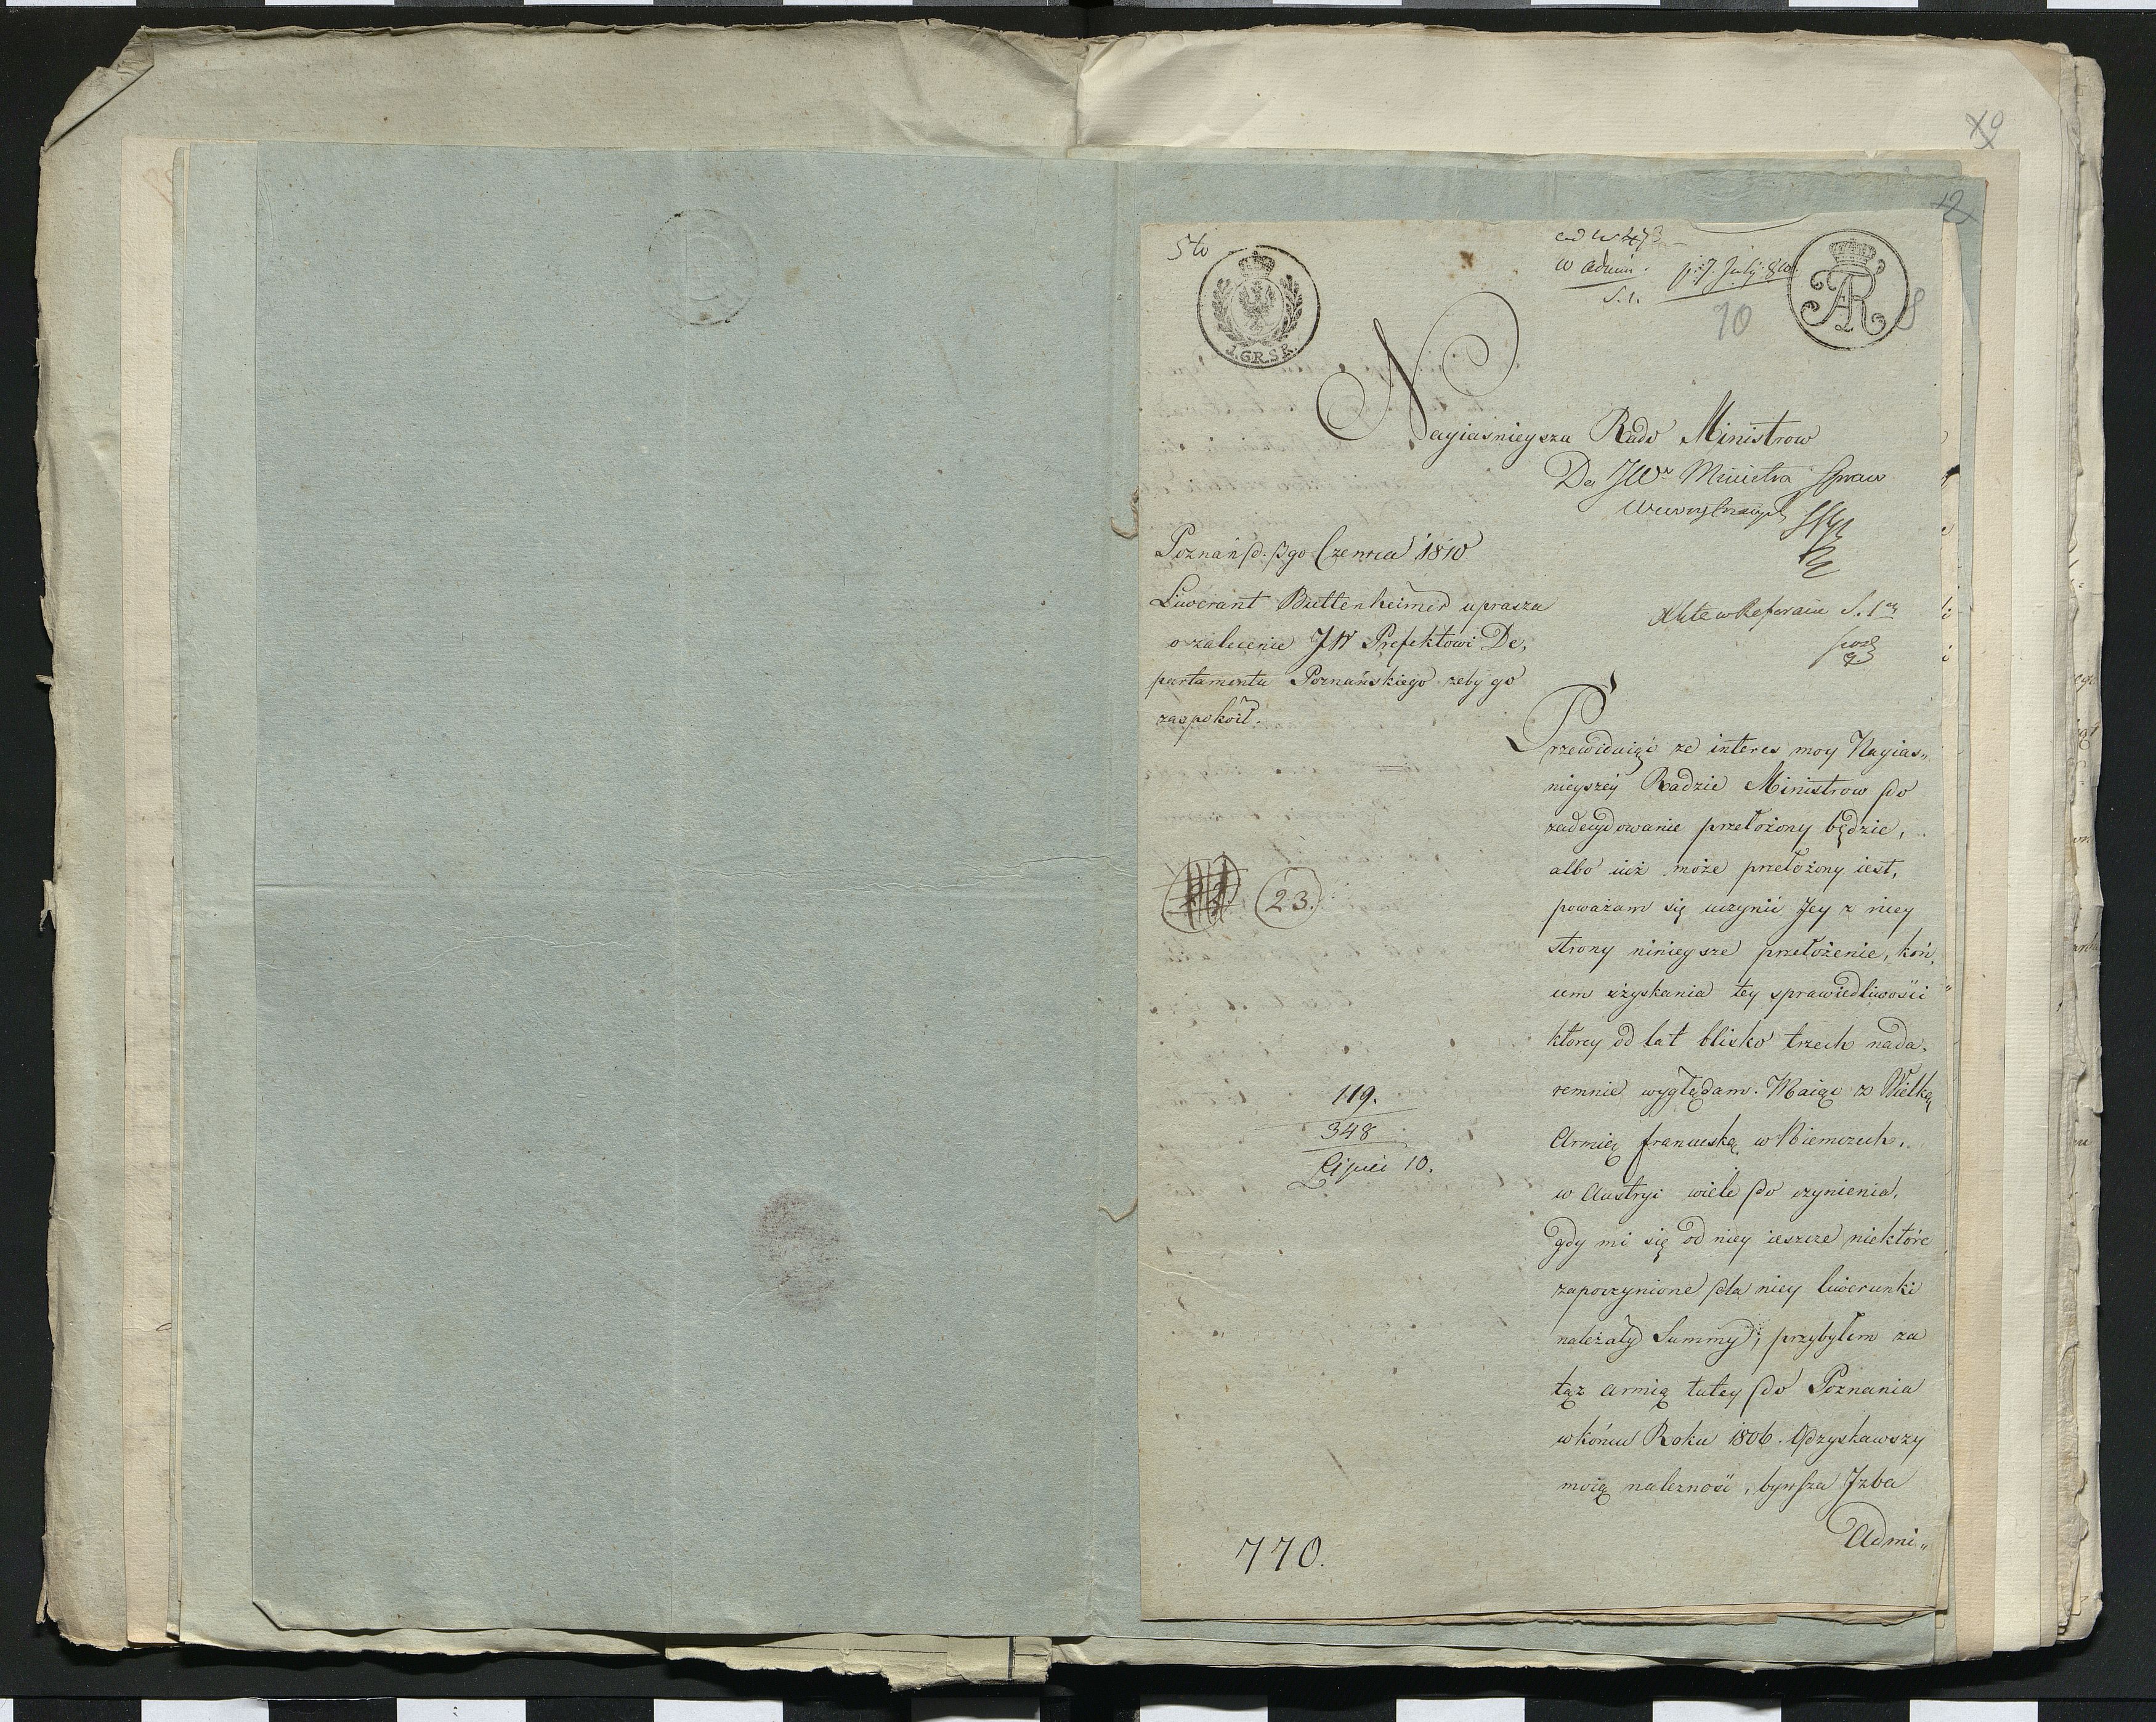 5to
w Admin.
p. 7. July 810.
S. 1.
10
8
12
J.GR.S.R.
AR
Nayiasnieysza Rado Ministrow
Do JWo Ministra Spraw
Wewnętrznych
Poznań d. 13go Czerwca 1810
Liwerant Buttenheimer uprasza
o zalecenie JW Prefektowi De„
partamentu Poznańskiego zeby go
zaspokoił.
Akta w Referacie S. 1ey
Przewiduiąc ze interes moy Nayias„
nieyszey Radzie Ministrow do
zadecydowanie przełożony będzie,
albo iuż może przełożony iest,
poważam się uczynić Jey z niey
strony ninieysze przełożenie, koń„
cem uzyskania tey sprawiedliwości
ktorey od lat blisko trzech nada„
remnie wyglądam. Maiąc z Wielką
Armią francuską w Niemczech,
w Austryi wiele do czynienia,
gdy mi się od niey ieszcze niektóre
zapoczynione dla niey liwerunki
należały Summy; przybyłem za
tąż armią tutey do Poznania
w końcu Roku 1806. Odzyskawszy
moią należność, bywsza Jzba
Admi„
23.
119.
348
Lipiec 10.
770.